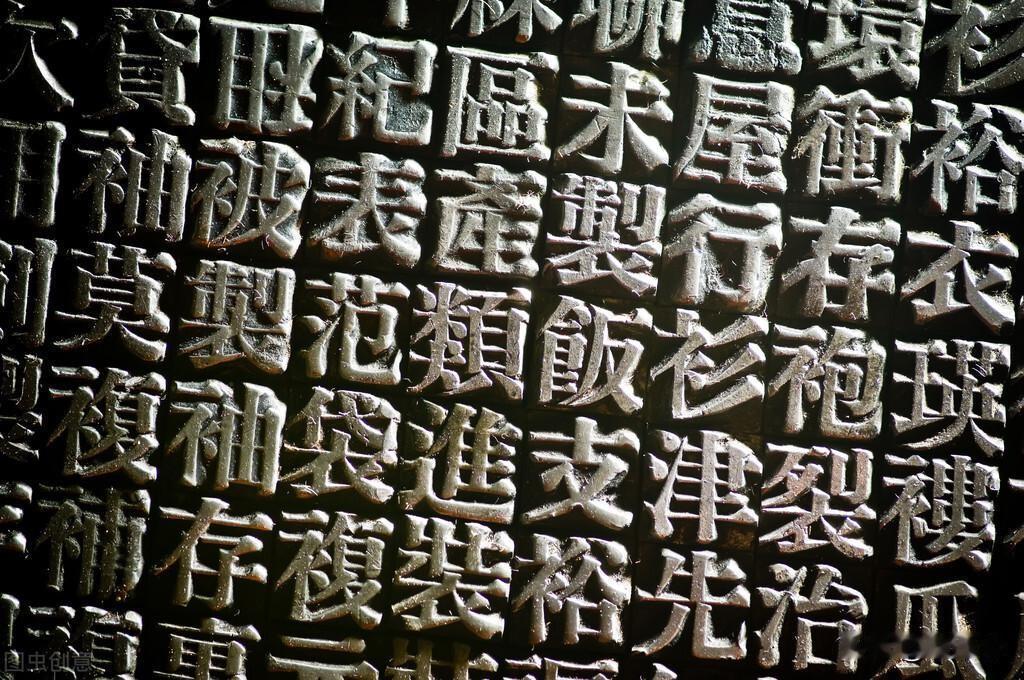 環
紀區未屋衝裕
袖被表產製行存衣
莫製范類飯衫袍瑛
複袖袋進支津裂褸
補存複裝裕先治
图虫创意